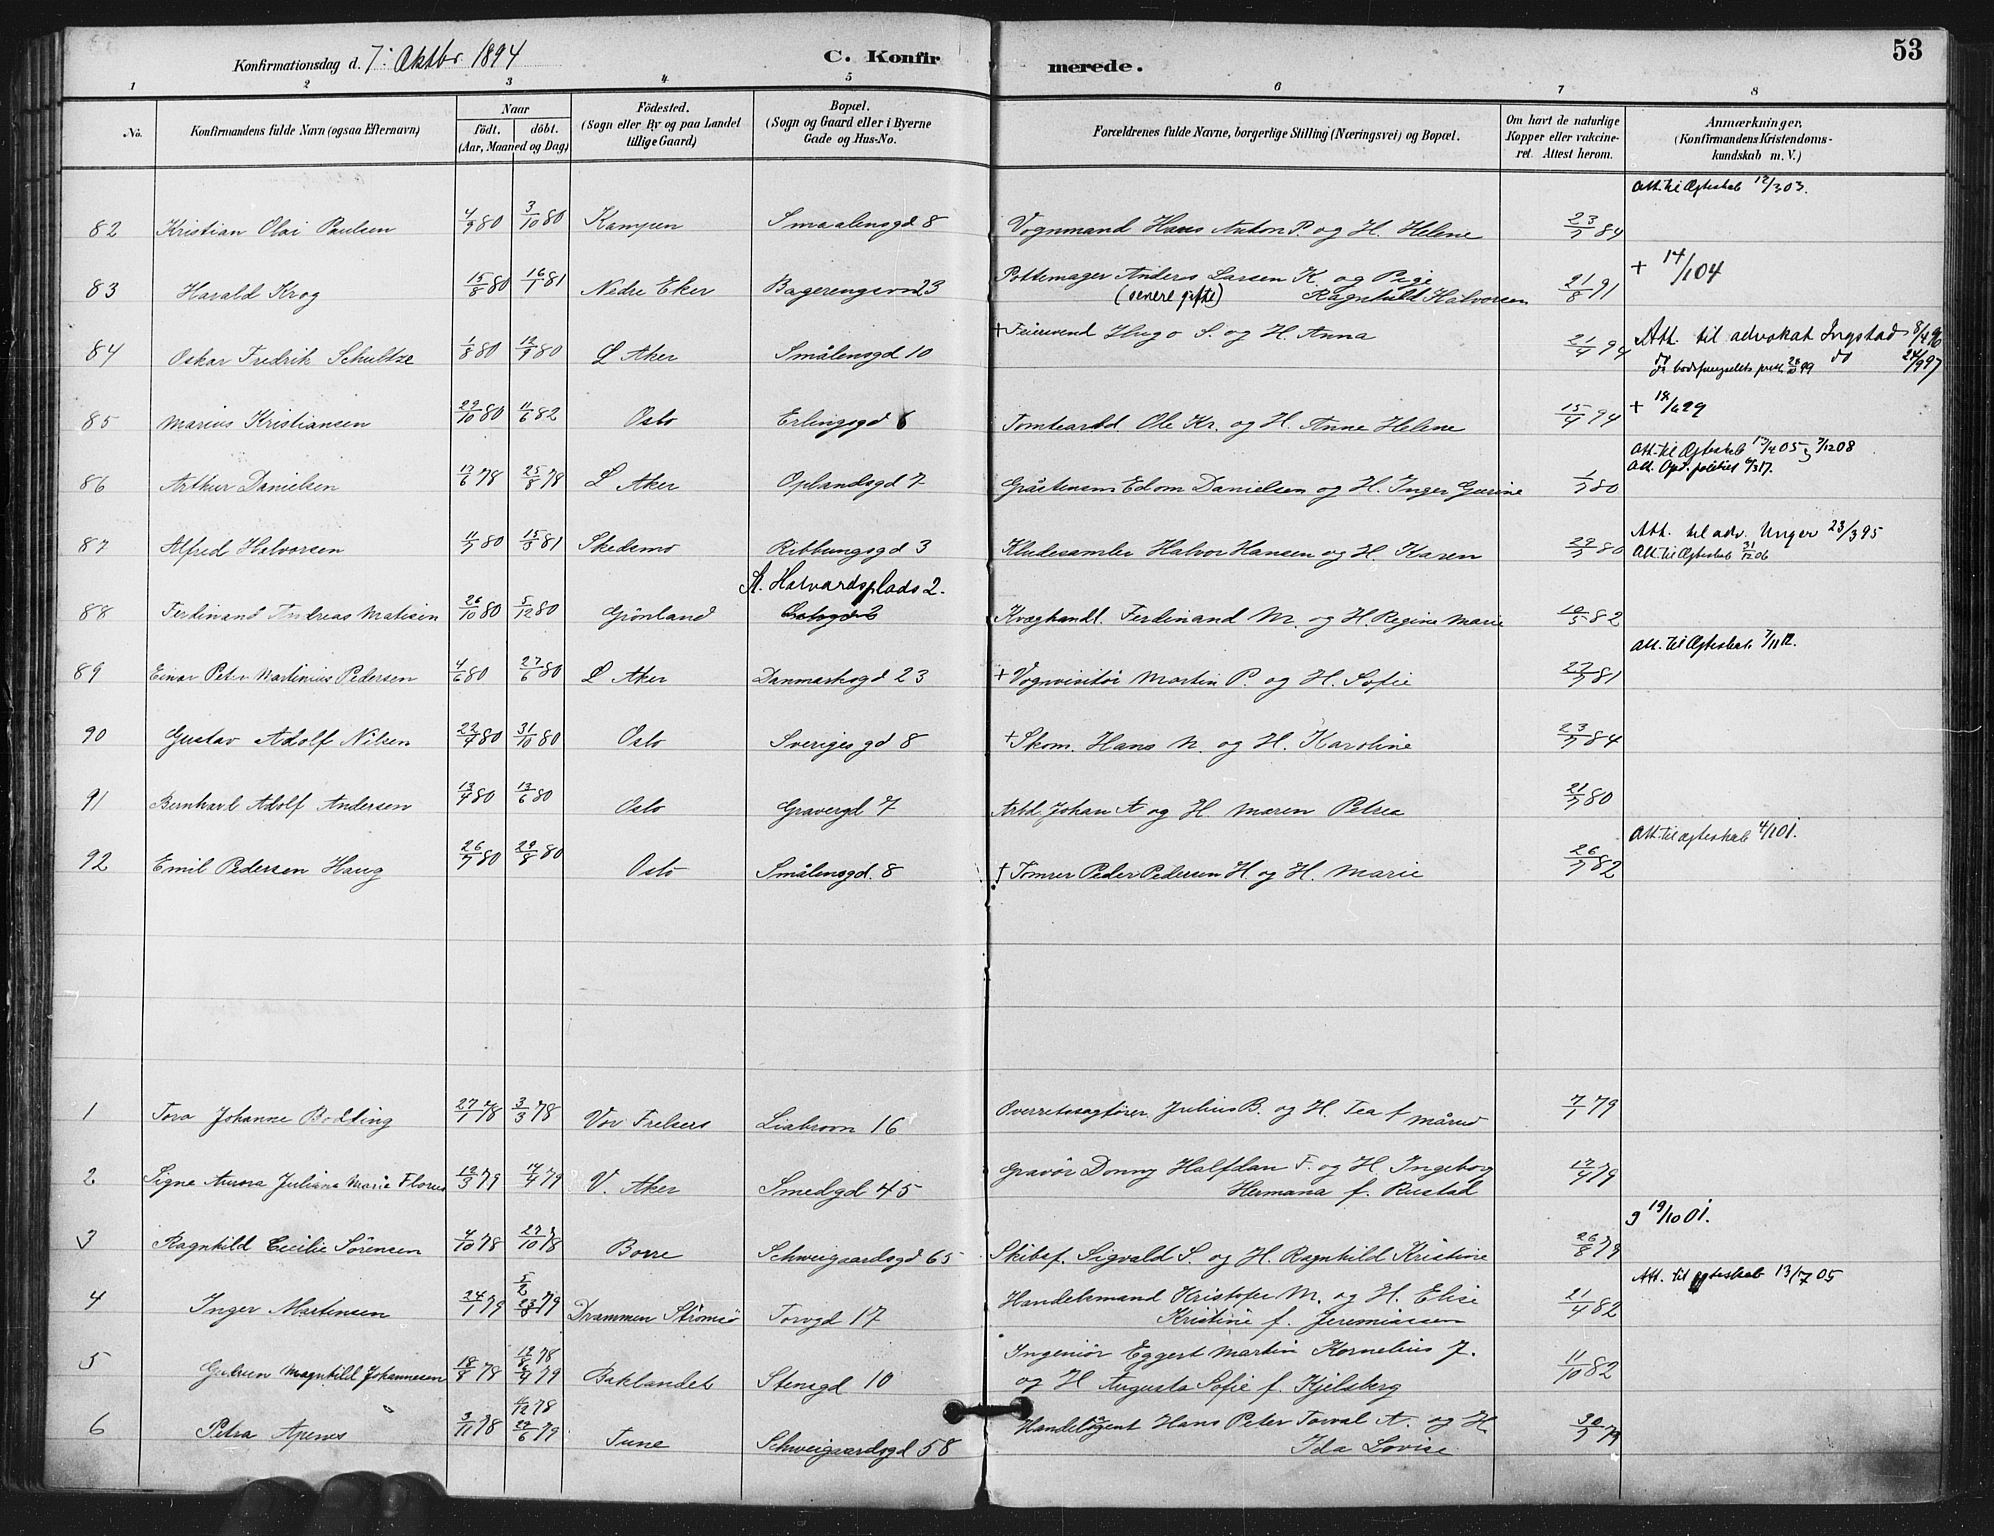 Konfirmationsdag d. 7. Oktbr 1894 C. Konfirmerede. 53
1 2 3 4 5 6 7 8
No. Konfirmandens fulde Navn (ogsaa Efternavn) Naar födt. döbt. (Aar, Maaned og Dag) Födested. (Sogn eller By og paa Landet tillige Gaard) Bopæl. (Sogn og Gaard eller i Byerne Gade og Hus-No. Forældrenes fulde Navne, borgerlige Stilling (Næringsvei) og Bopæl. Om havt de naturlige Kopper eller vakcineret. Attest herom. Anmærkninger, (Konfirmandens Kristendomskundskab m. V.)
Att. til Ægteskab 12/3 03.
82 Kristian Olai Paulsen 4/9 80 3/10 80 Kampen Smaalensgd 8 Vognmand Hans Anton P. og H. Helene 23/7 84
83 Harald Krog 15/8 80 16/1 81 Nedre Eker Bagerengveien 23 Pottemager Anders Larsen K. og Pige (senere gifte) Ragnhild Halvorsen 21/8 91 + 14/1 04
84 Oskar Fredrik Schultze 1/8 80 12/9 80 L Aker Smålensgd 10 + Feiersvend Hugo S. og H. Anna 21/4 94 Att. til advokat Ingstad 8/4 96
do bodsfængselets prest 28/10 99 do 24/9 97
85 Marius Kristiansen 29/10 80 11/6 82 Oslo Erlingsgd 6 Tomtearbd. Ole Kr. og H. Anne Helene 15/4 94 + 18/6 29
Att. til Ægteskab 13/4 05 7/12 08
86 Arthur Danielsen 17/6 78 25/8 78 L Aker Oplandsgd 7 Gråstensm Edom Danielsen og H. Inger Gurine 1/7 80 Att. Opd. politiet 6/3 17.
87 Alfred Halvorsen 11/7 80 15/3 81 Skedsmo Ribbungsgd 3 Kludesamler Halvor Hansen og H. Karen 29/7 80 Att. til adv. Unger 23/3 95
Att. til Ægteskab 31/12 06
St. Halvardsplads 2.
88 Ferdinand Andreas Matisen 26/10 80 5/12 80 Grönland Oslogd 2 Kvæghandl. Ferdinand M. og H. Regine Marie 10/5 82
Att. til Ægteskab 7/11 12.
89 Einar Peter Martinius Pedersen 4/6 80 27/6 80 L Aker Danmarksgd 23 + Vognvisitör Martin P. og H. Sofie 27/7 81
90 Gustav Adolf Nilsen 22/7 80 31/10 80 Oslo Sverigesgd 8 + Skom. Hans N. og H. Karoline 23/7 84
91 Bernhard Adolf Andersen 13/4 80 13/6 80 Oslo Gravergd 7 Arbd. Johan A og H. Maren Petrea 21/7 80
92 Emil Pedersen Haug 26/7 80 29/8 80 Oslo Smålensgd. 8 + Tömrer Peder Pedersen H. og H. Marie 26/7 82 Att. til ægteskab 4/1 01.
1 Tora Johanne Bodting 27/1 78 3/3 78 Vor Frelsers Liabroen 16 Overretssagförer Julius B. og H. Tea f Mårud 7/1 79
2 Signe Aurora Juliana Marie Florus 12/3 79 14/4 79 V. Aker Smedgd 45 Gravör Donny Halfdan F. og H. Ingeborg Hermana f. Rustad 17/4 79
3 Ragnhild Cecilie Sörensen 4/10 78 27/10 78 Borre Schweigaardsgd 65 Skibsf. Sigvald S. og H. Ragnhild Kristine 26/8 79 19/10 01.
4 Inger Martinsen 24/1 79 5/2 23/3 79 Drammen Strömsö Torvgd 17 Handelsmand Kristofer M. og H. Elise Kristine f. Jeremiassen 21/4 82 Att. til ægteskab 13/7 05
5 Gudrun Magnhild Johannesen 18/8 78 12/8 78 6/4 79 Baklandet Stensgd 10 Ingeniör Eggert Martin Kornelius J. og H Augusta Sofie f. Kjelsberg 11/10 82
6 Petra Apenes 3/11 78 4/12 78 22/6 79 Tune Schweigaardsgd 58 Handelsagent Hans Peter Torval A. og H. Ida Lovise 30/7 79